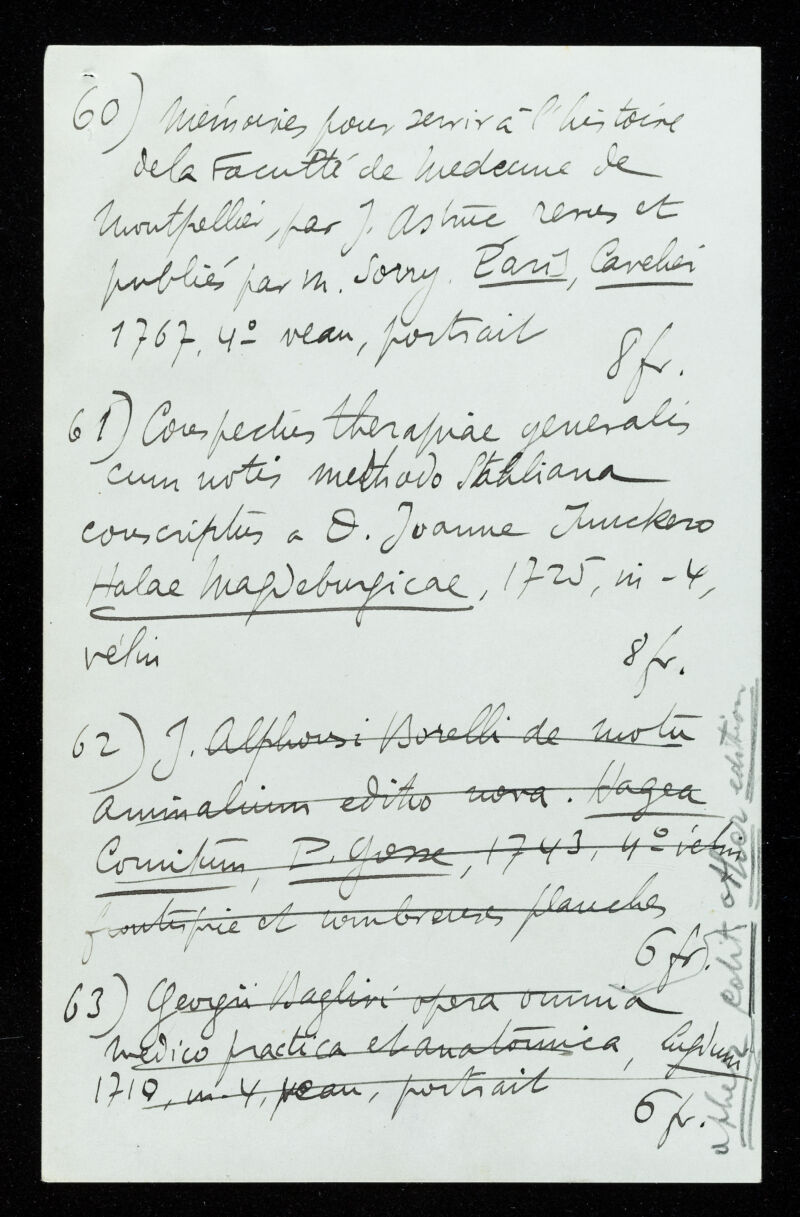 60) Mémoires pour servir à l'histoire
de la Faculté de Medecine de
Montpellier, par J. Astruc revus et
publiés par M. Lorry. Paris, Cavelier
1767, 4º veau, portrait
8 fr.
61) Conspectus therapiae generalis
cum notis methodo Stahliana
conscriptus a D. Joanne Junckero
Halae Magdeburgicae, 1725, in-4,
vélin
8 fr.
62) J. Alphonsi Borelli de motu
animalium editio nova. Hagea
Comitum, P. Gosse, 1743, 4º vélin
frontispice et nombreuses planches
6 fr.
63) Georgii Baglivi opera omnia
medico practica et anatomica, Lugduni
1710, in-4, veau, portrait
6 fr.
other edition